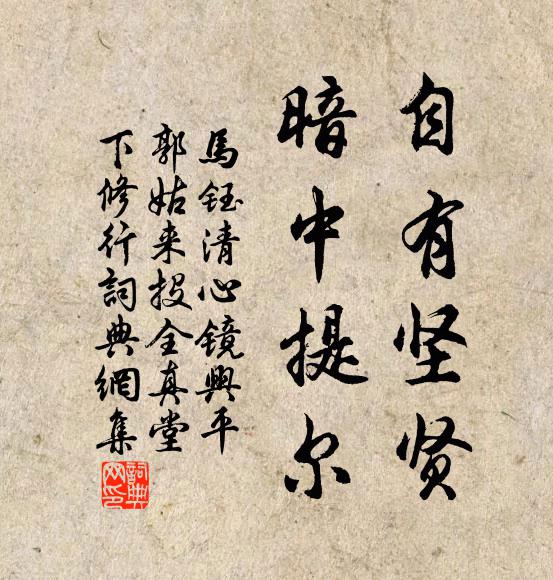 自有坚贤
暗中提尔
馬鈺清心镜興平
郭姑来投全真堂
下修行詞典網集
詞典网印